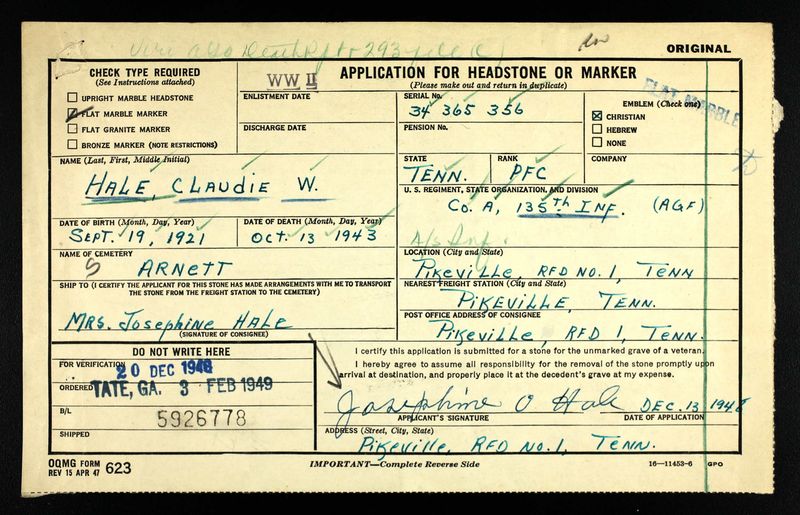 ORIGINAL
CHECK TYPE REQUIRED
(See Instructions attached)
UPRIGHT MARBLE HEADSTONE
FLAT MARBLE MARKER
FLAT GRANITE MARKER
BRONZE MARKER (NOTE RESTRICTIONS)
WW II
APPLICATION FOR HEADSTONE OR MARKER
(Please make out and return in duplicate)
FLAT MARBLE
ENLISTMENT DATE
DISCHARGE DATE
SERIAL No.
34 365 356
PENSION No.
EMBLEM (Check one)
CHRISTIAN
HEBREW
NONE
NAME (Last, First, Middle Initial)
HALE, CLAUDIE W.
STATE
TENN.
RANK
PFC
COMPANY
U. S. REGIMENT, STATE ORGANIZATION, AND DIVISION
Co. A, 135th INF. (AGF)
DATE OF BIRTH (Month, Day, Year)
SEPT. 19, 1921
DATE OF DEATH (Month, Day, Year)
OCT. 13 1943
NAME OF CEMETERY
ARNETT
LOCATION (City and State)
PIKEVILLE, RFD NO. 1, TENN
SHIP TO (I CERTIFY THE APPLICANT FOR THIS STONE HAS MADE ARRANGEMENTS WITH ME TO TRANSPORT
THE STONE FROM THE FREIGHT STATION TO THE CEMETERY)
MRS. Josephine HALE
(SIGNATURE OF CONSIGNEE)
NEAREST FREIGHT STATION (City and State)
PIKEVILLE, TENN.
POST OFFICE ADDRESS OF CONSIGNEE
PIKEVILLE, RFD 1, TENN.
DO NOT WRITE HERE
FOR VERIFICATION
20 DEC 1948
ORDERED
TATE, GA. 3 FEB 1949
B/L
5926778
SHIPPED
I certify this application is submitted for a stone for the unmarked grave of a veteran.
I hereby agree to assume all responsibility for the removal of the stone promptly upon
arrival at destination, and properly place it at the decedent's grave at my expense.
Josephine O Hale DEC. 13, 1948
APPLICANT'S SIGNATURE
DATE OF APPLICATION
ADDRESS (Street, City, State)
Pikeville, RFD NO. 1, TENN.
OQMG FORM
REV 15 APR 47 623
IMPORTANT—Complete Reverse Side
16—11453-6 GPO